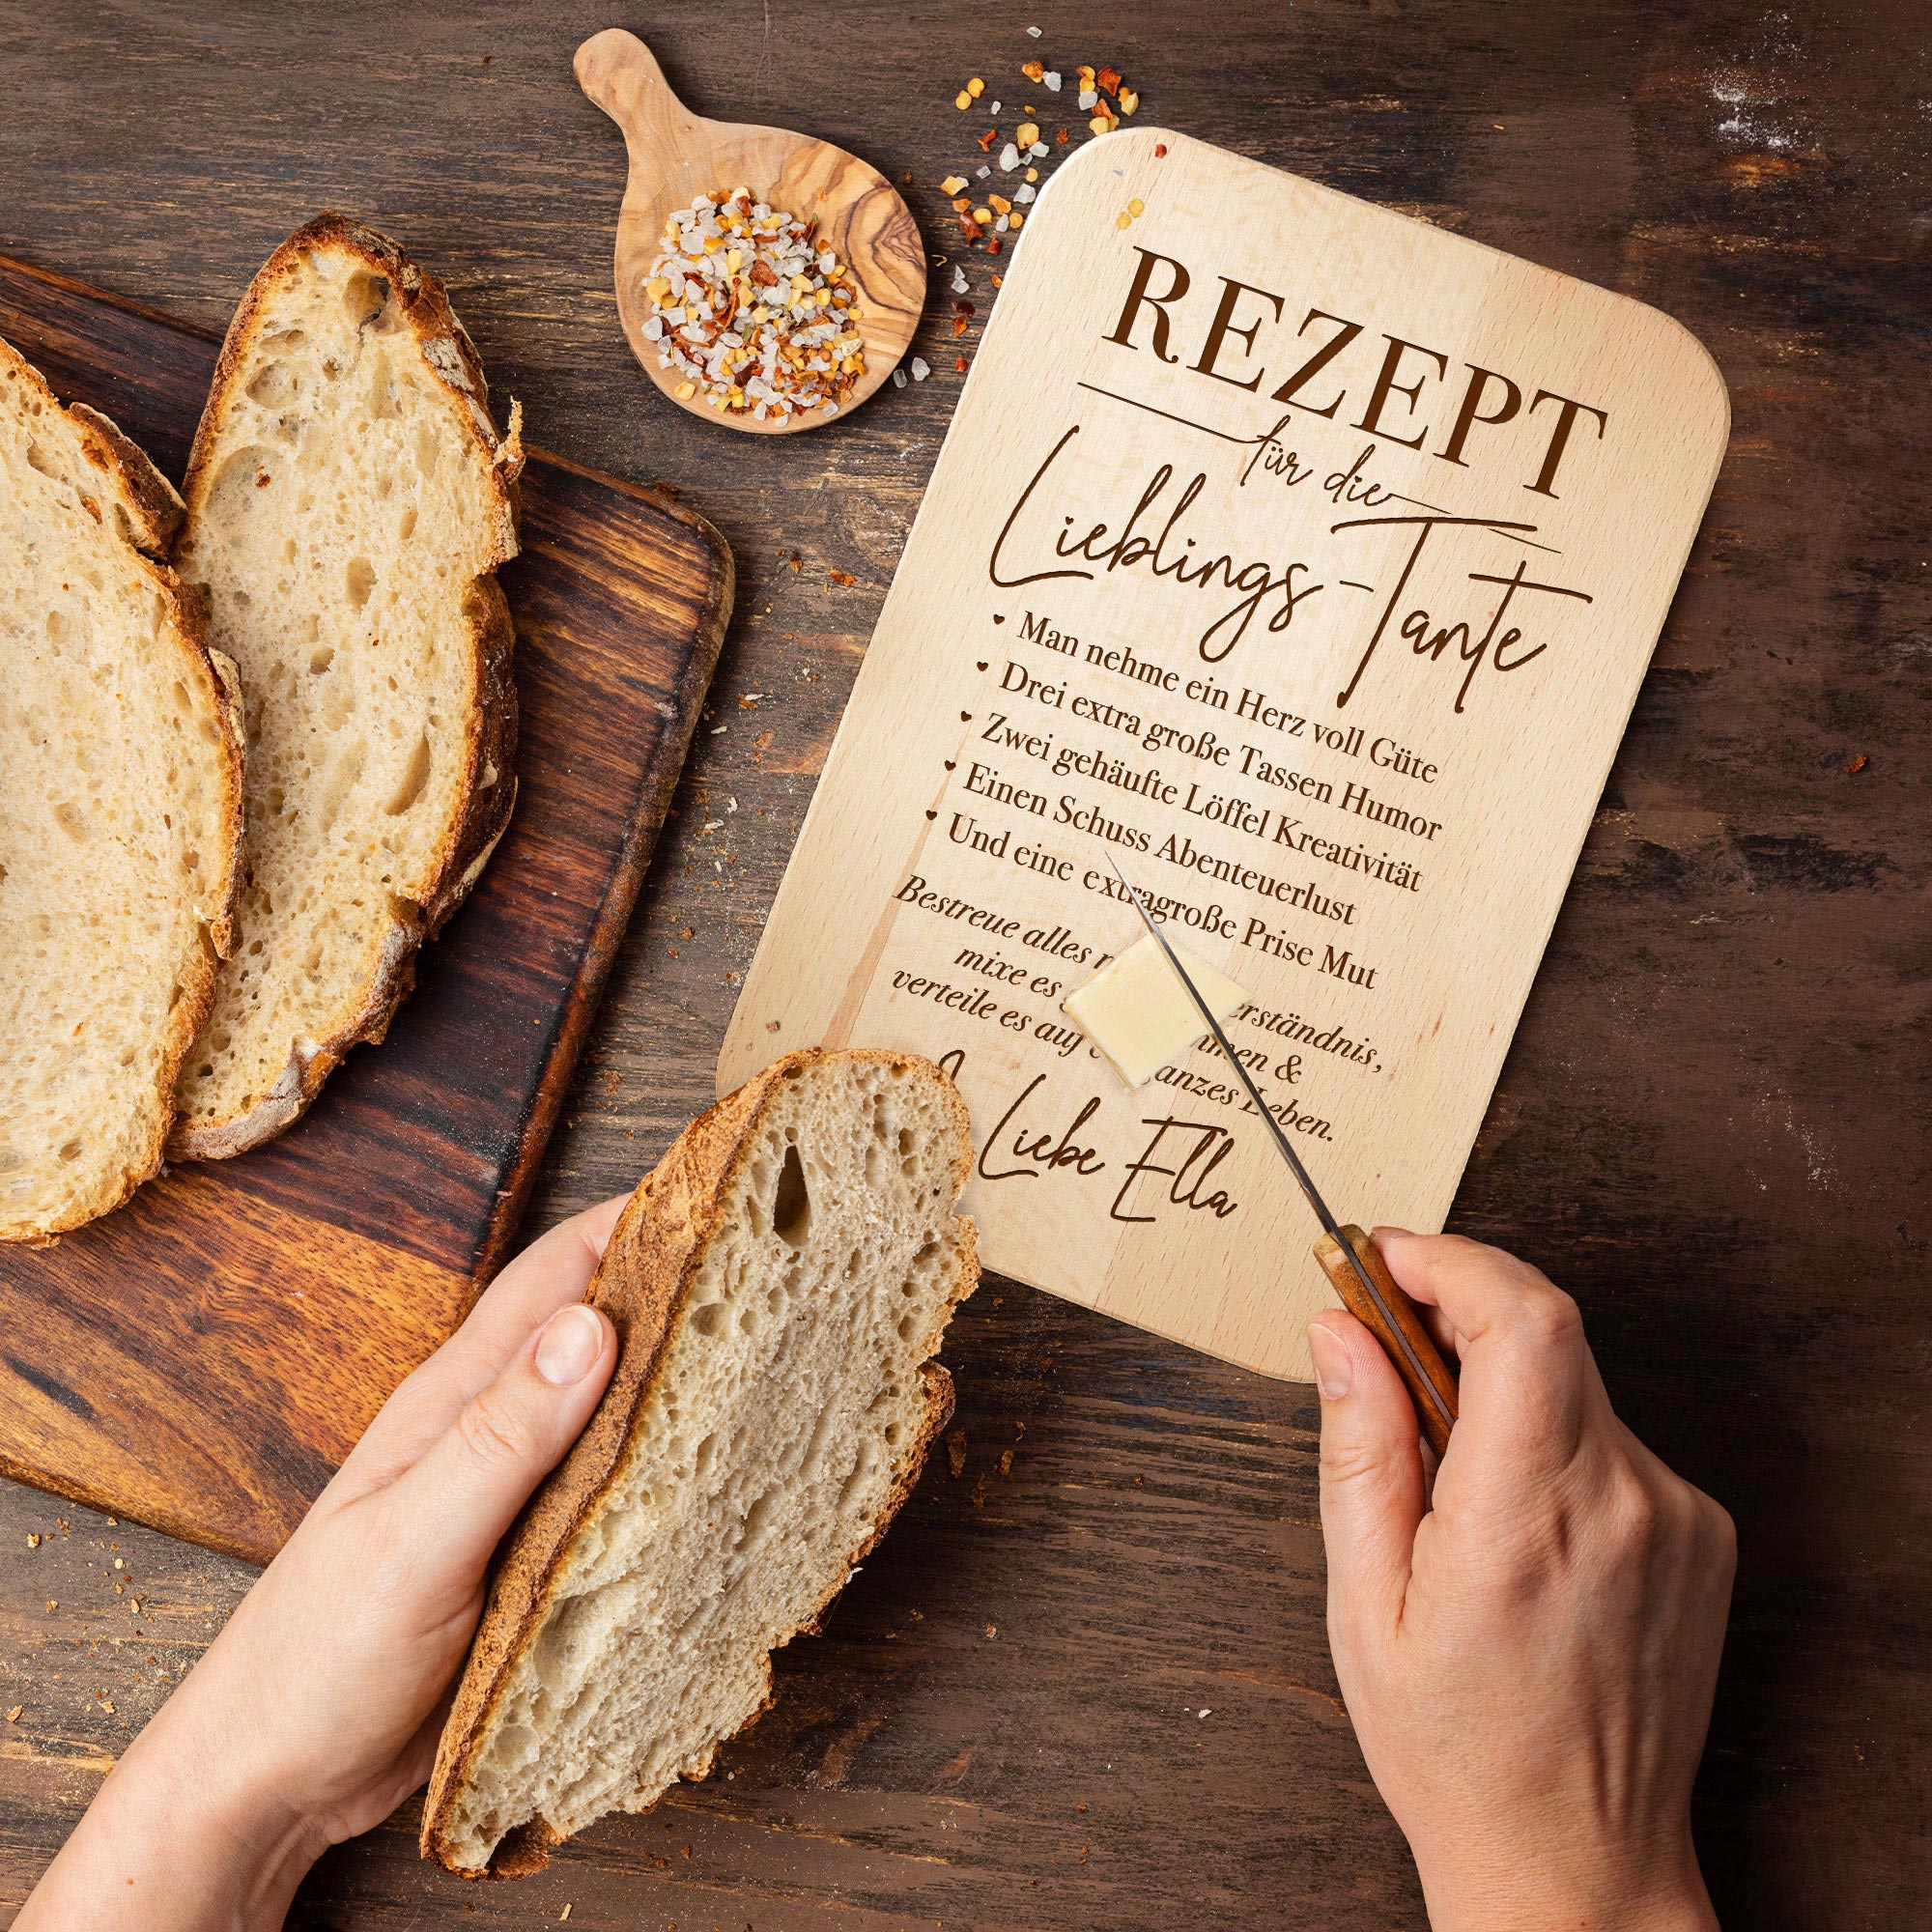 REZEPT
für die
Lieblings-Tante
Man nehme ein Herz voll Güte
Drei extra große Tassen Humor
Zwei gehäufte Löffel Kreativität
Einen Schuss Abenteuerlust
Und eine extragroße Prise Mut
Bestreue alles
mixe es &
verteile es auf Leben.
Liebe Ella